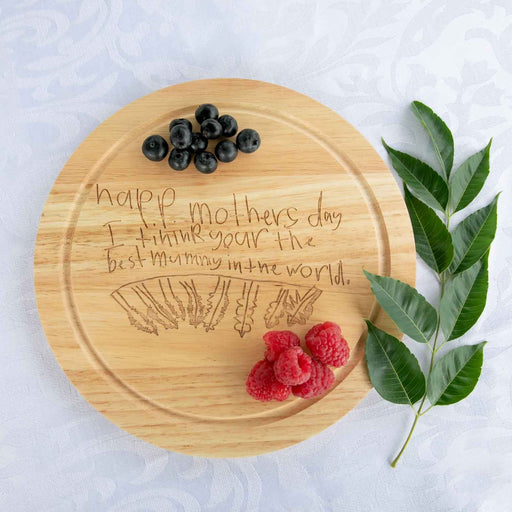 happ. mothers day
I thihk your the
best mummy in the world.